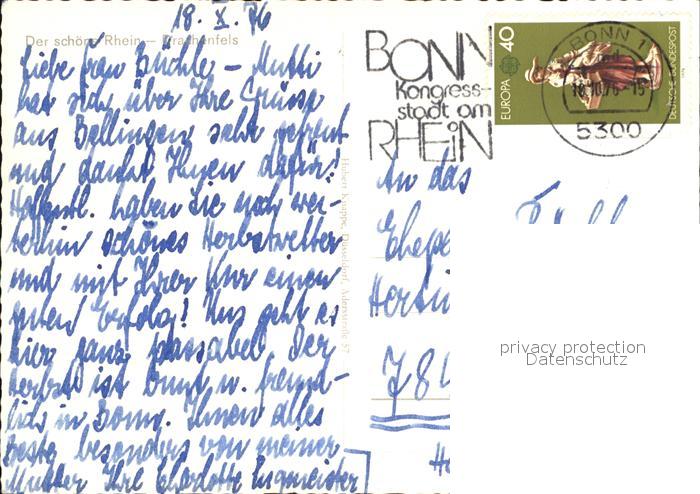 18. X. 76
Der schöne Rhein — Drachenfels
Liebe Frau Büchle – Mutti
hat sich über Ihre Grüsse
aus Bellingen sehr gefreut
und dankt Ihnen dafür!
Hoffentl. haben Sie noch wei-
terhin schönes Herbstwetter
und mit Ihrer Kur einen
guten Erfolg! Uns geht es
hier ganz passabel. Der
Herbst ist bunt u. freund-
lich in Bonn. Ihnen alles
Beste besonders von meiner
Mutter Ihre Charlotte
Hubert Krappe, Düsseldorf, Adersstraße 57
BONN
Kongress-
stadt am
RHEiN
EUROPA 40
DEUTSCHE BUNDESPOST
BONN 1
18.10.76-15
5300
An das
Ehepa
784
privacy protection
Datenschutz